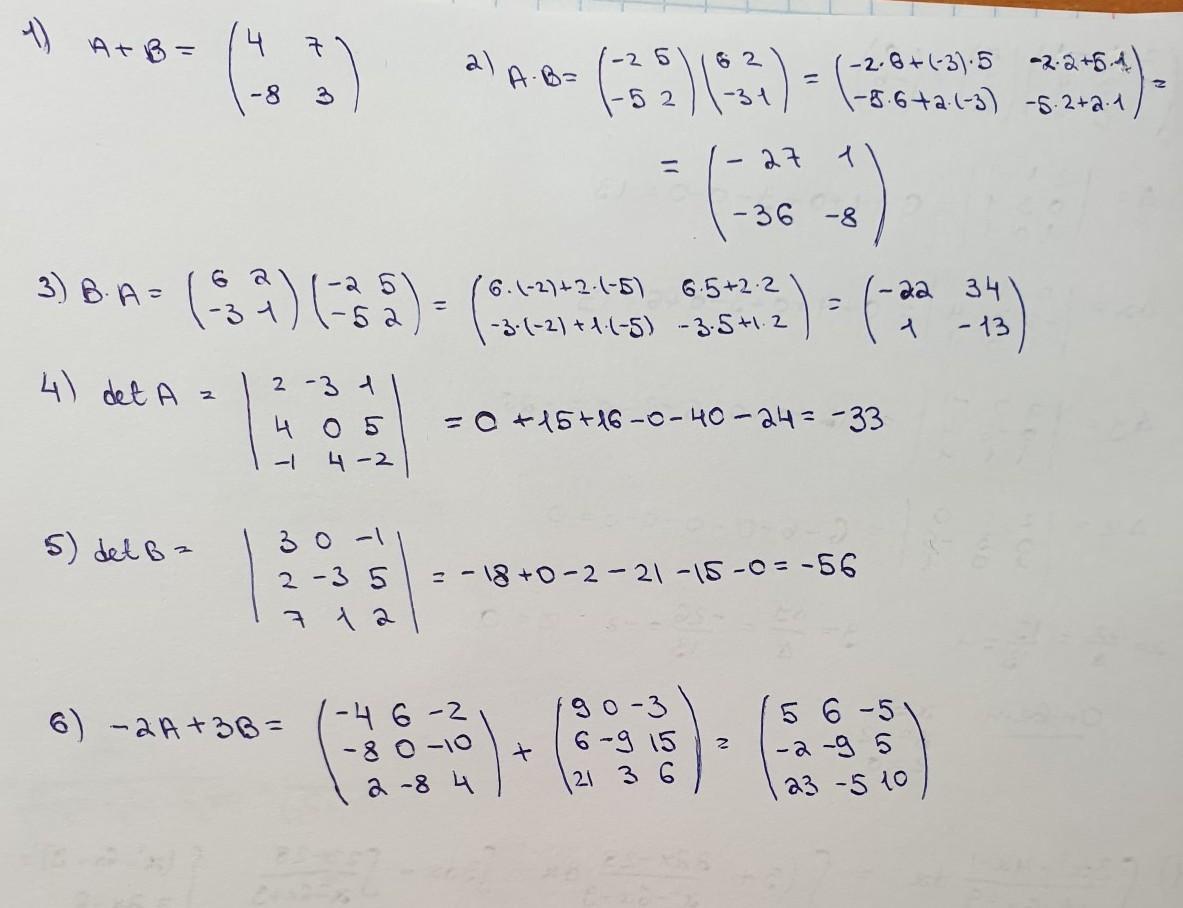 1) A+B = (4 7
-8 3)
2) A·B= (-2 5
-5 2) (6 2
-3 1) = (-2·6+(-3)·5 -2·2+5·1
-5·6+2·(-3) -5·2+2·1) =
= (-27 1
-36 -8)
3) B·A= (6 2
-3 1) (-2 5
-5 2) = (6·(-2)+2·(-5) 6·5+2·2
-3·(-2)+1·(-5) -3·5+1·2) = (-22 34
1 -13)
4) det A = |2 -3 1
4 0 5
-1 4 -2| = 0+15+16-0-40-24= -33
5) det B= |3 0 -1
2 -3 5
7 1 2| = -18+0-2-21-15-0= -56
6) -2A+3B= (-4 6 -2
-8 0 -10
2 -8 4) + (9 0 -3
6 -9 15
21 3 6) = (5 6 -5
-2 -9 5
23 -5 10)